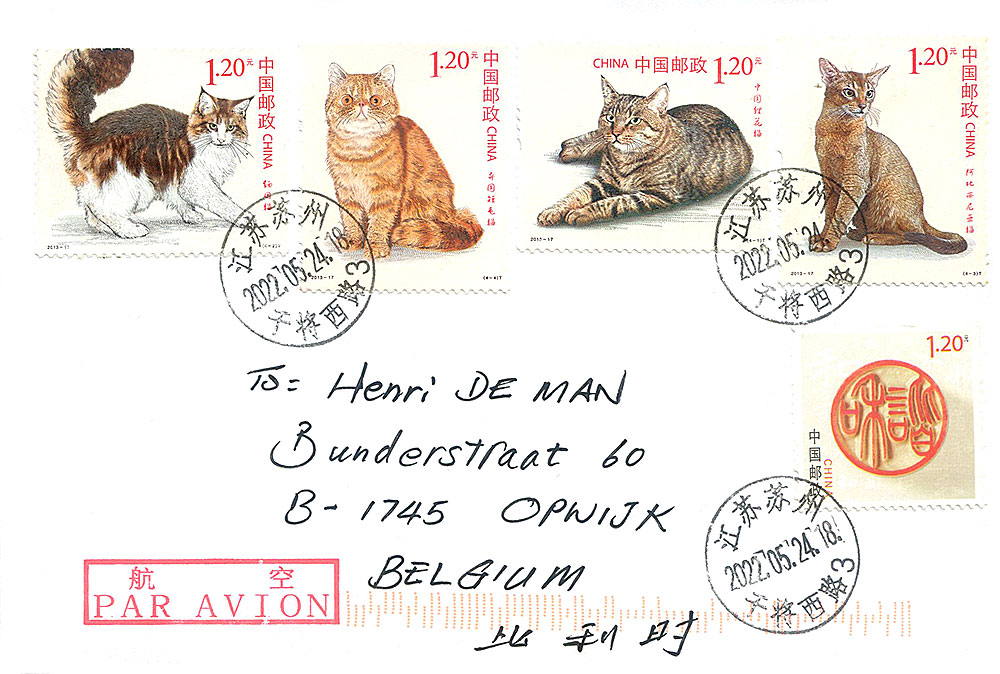 1.20元
中国邮政 CHINA
2013-17
1.20元
中国邮政 CHINA
异国短毛猫
2013-17
(4-4)T
CHINA 中国邮政 1.20元
中国狸花猫
2013-17
1.20元
中国邮政 CHINA
阿比西尼亚猫
2013-17
(4-3)T
江苏苏州
2022.05.24.18
干将西路3
江苏苏州
2022.05.24
干将西路3
1.20元
和諧
中国邮政
CHINA
To: Henri DE MAN
Bunderstraat 60
B-1745 OPWIJK
BELGIUM
比利时
航空
PAR AVION
江苏苏州
2022.05.24.18
干将西路3